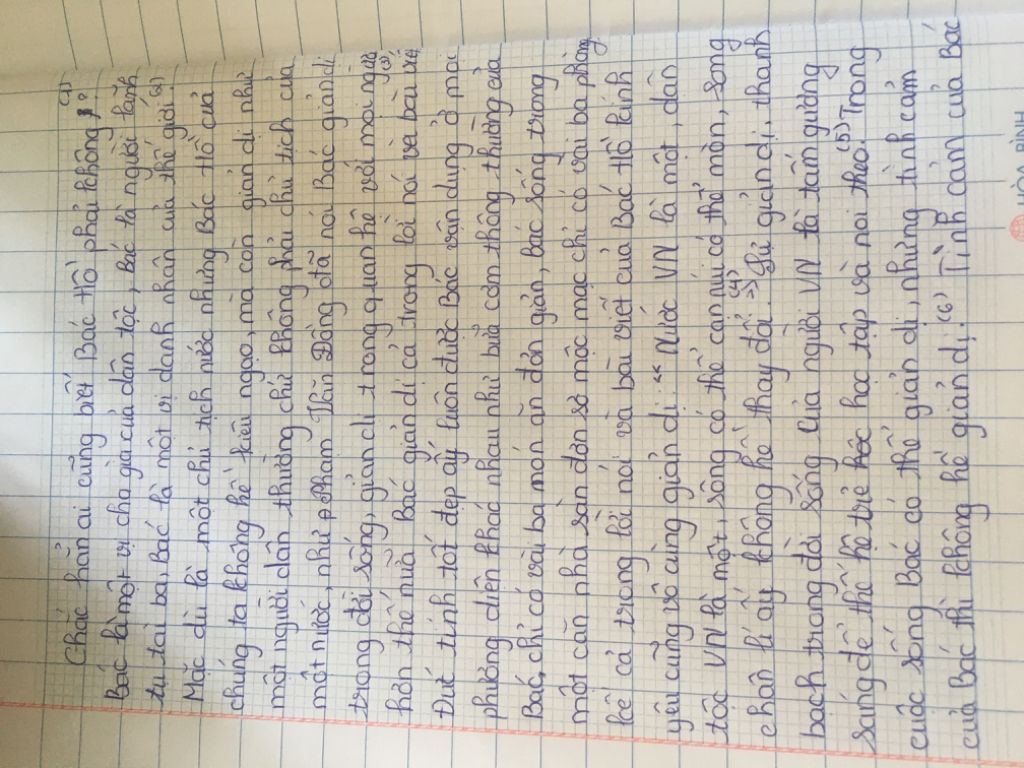 Chắc hẳn ai cũng biết Bác Hồ phải không? (1)
Bác là một vị cha già của dân tộc, Bác là người lãnh
tụ tài ba, Bác là một vị danh nhân của thế giới. (2)
Mặc dù là một chủ tịch nước nhưng Bác Hồ của
chúng ta không hề kiêu ngạo, mà còn giản dị như
một người dân thường chứ không phải chủ tịch của
một nước, như Phạm Văn Đồng đã nói Bác giản dị
trong đời sống, giản dị trong quan hệ với mọi người
hơn thế nữa Bác giản dị cả trong lời nói và bài viết (3)
Đức tính tốt đẹp ấy luôn được Bác vận dụng ở mọi
phương diện khác nhau như bữa cơm thông thường của
Bác, chỉ có vài ba món ăn đơn giản, Bác sống trong
một căn nhà sàn đơn sơ mộc mạc chỉ có vài ba phòng.
kể cả trong lời nói và bài viết của Bác Hồ kính
yêu cũng vô cùng giản dị: "Nước VN là một, dân
tộc VN là một, sông có thể cạn núi có thể mòn, song
chân lí ấy không hề thay đổi". (4) Sự giản dị, thanh
bạch trong đời sống của người VN là tấm gương
sáng để thế hệ trẻ học tập và noi theo. (5) Trong
cuộc sống Bác có thể giản dị, nhưng tình cảm
của Bác thì không hề giản dị. (6) Tình cảm của Bác
HÒA BÌNH